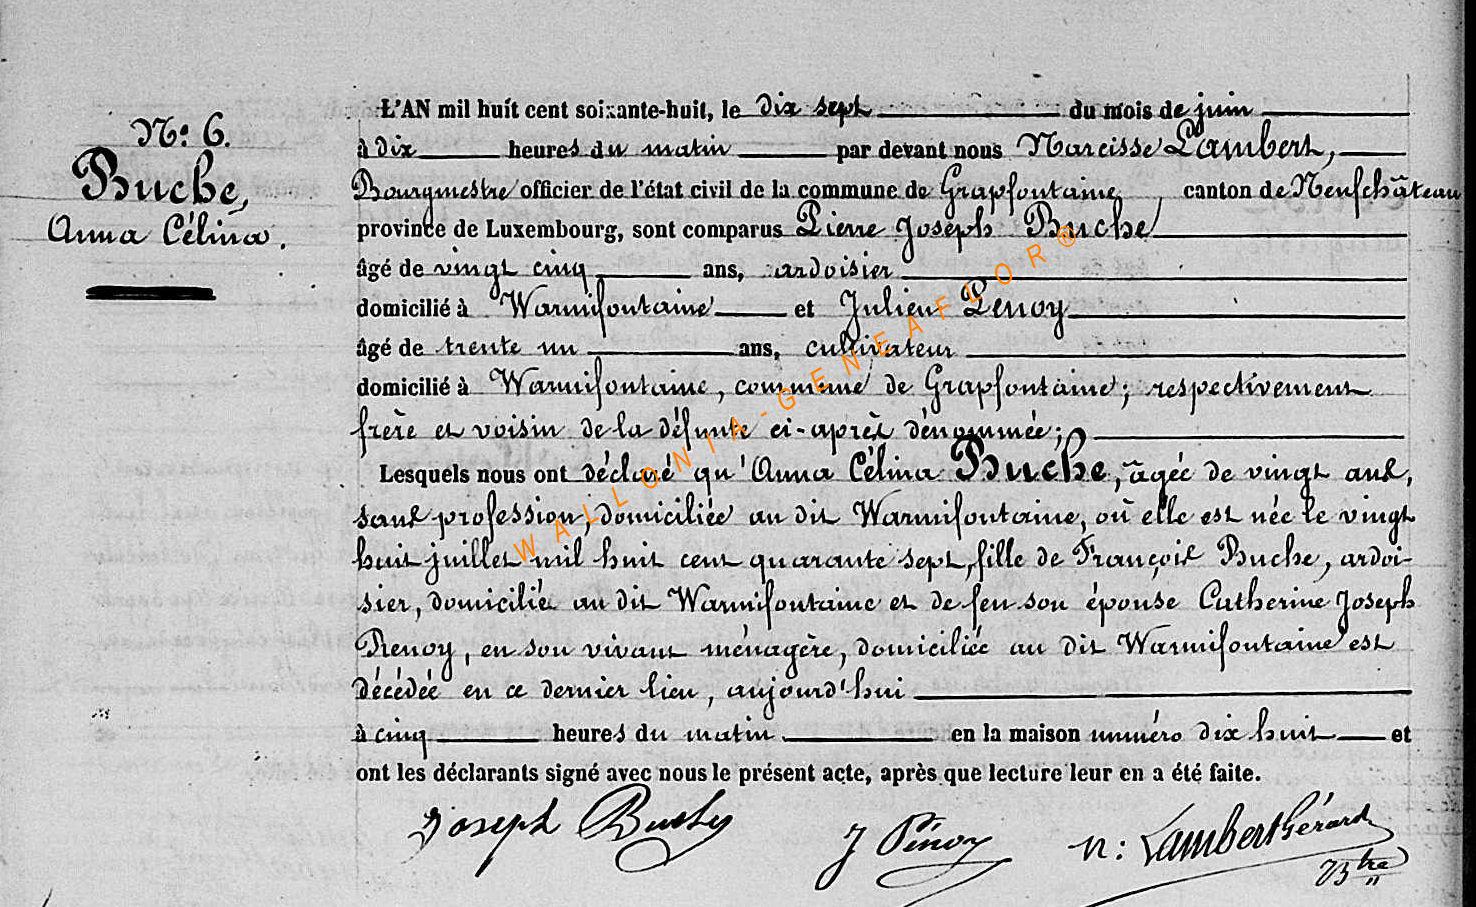 N°. 6.
Buche,
Anna Célina.
L'AN mil huit cent soixante-huit, le dix sept du mois de juin
à dix heures du matin par devant nous Narcisse Lambert,
Bourgmestre officier de l'état civil de la commune de Grapfontaine, canton de Neufchâteau
province de Luxembourg, sont comparus Pierre Joseph Buche
âgé de vingt cinq ans, ardoisier
domicilié à Warmifontaine et Julien Penoy
âgé de trente un ans, cultivateur
domicilié à Warmifontaine, commune de Grapfontaine; respectivement
frère et voisin de la défunte ci-après dénommée;
Lesquels nous ont déclaré qu'Anna Célina Buche, âgée de vingt ans,
sans profession, domiciliée au dit Warmifontaine, où elle est née le vingt
huit juillet mil huit cent quarante sept, fille de François Buche, ardoi-
sier, domicilié au dit Warmifontaine et de feu son épouse Catherine Joseph
Penoy, en son vivant ménagère, domiciliée au dit Warmifontaine est
décédée en ce dernier lieu, aujourd'hui
à cinq heures du matin en la maison numéro dix huit et
ont les déclarants signé avec nous le présent acte, après que lecture leur en a été faite.
Joseph Buche
J Pénoy
N: Lambert Gérard
WALLONIA-GENEAFLOR®